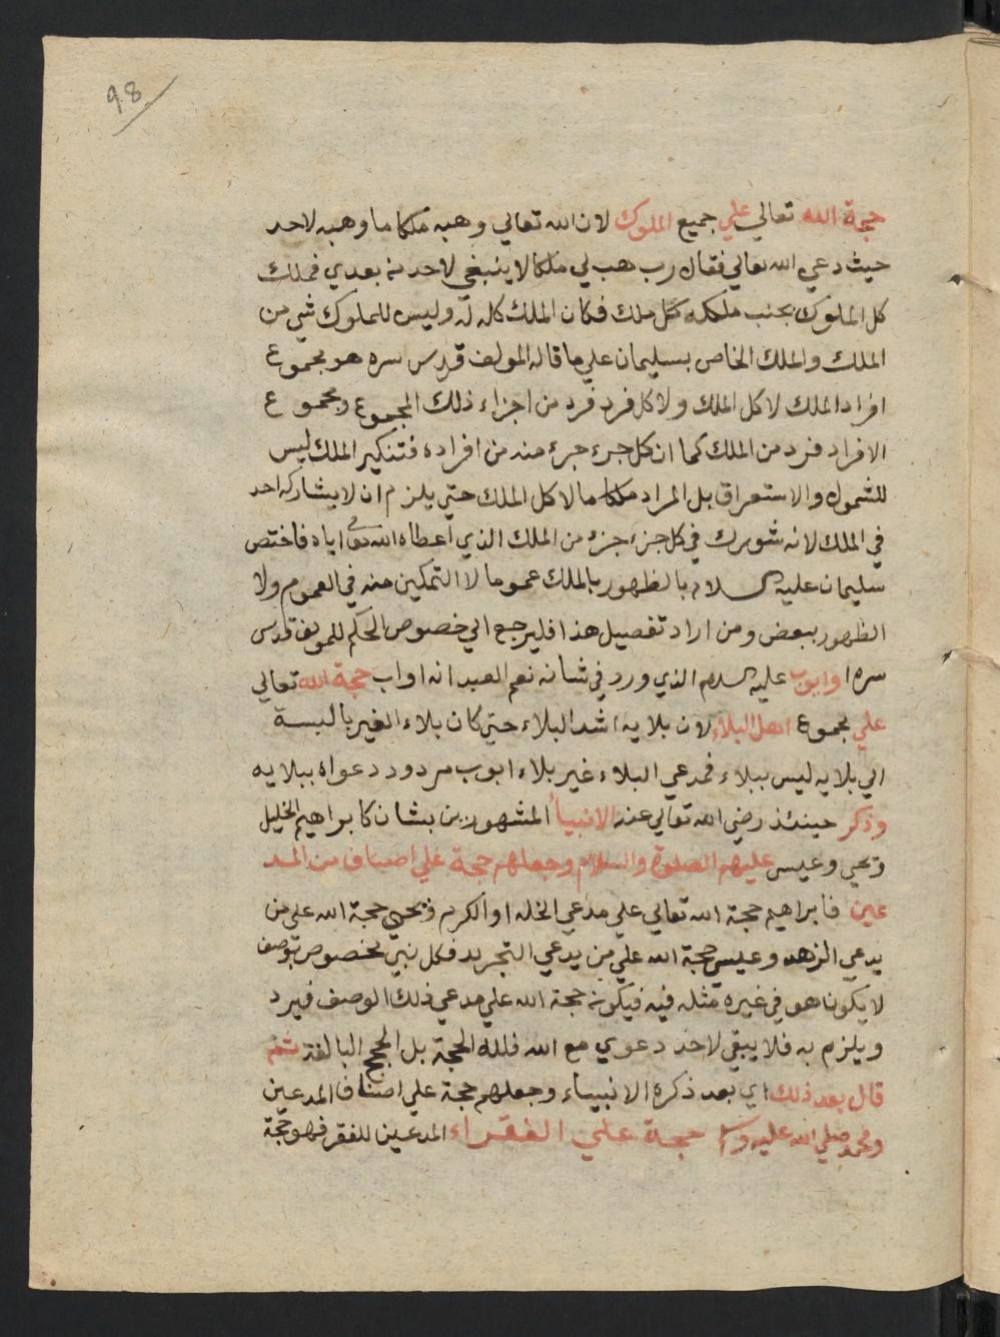 98
حجة الله تعالي علي جميع الملوك لان الله تعالي وهبه ملكا ما وهبه لاحد
حيث دعي الله تعالي فقال رب هب لي ملكا لا ينبغي لاحد من بعدي فملك
كل الملوك بجنب ملكه كل ملك فكان الملك كله له وليس للملوك شي من
الملك والملك الخاص بسليمان علي ما قاله المولف قدس سره هو مجموع
افراد الملك لا كل الملك ولا كل فرد فرد من اجزاء ذلك المجموع ومجموع
الافراد فرد من الملك كما ان كل جزء جزء منه من افراده فتنكير الملك ليس
للشمول والاستغراق بل المراد ملكا ما لا كل الملك حتي يلزم ان لا يشاركه احد
في الملك لانه شورك في كل جزء جزء من الملك الذي اعطاه الله تعالي اياه فاختص
سليمان عليه السلام بالظهور بالملك عموما لا التمكين منه في العموم ولا
الظهور ببعض ومن اراد تفصيل هذا فليرجع الي خصوص الحكم للمولف قدس
سره وايوب عليه السلام الذي ورد في شانه نعم العبد انه اواب حجة الله تعالي
علي مجموع اهل البلاء لان بلايه اشد البلاء حتي كان بلاء الغير بالنسبة
الي بلايه ليس ببلاء فمدعي البلاء غير بلاء ايوب مردود دعواه ببلايه
وذكر حينئذ رضي الله تعالي عنه الانبياء المشهورين بشان كابراهيم الخليل
ويحيي وعيسي عليهم الصلوة والسلام وجعلهم حجة علي اصناف من المد
عين فابراهيم حجة الله تعالي علي مدعي الخله او الكرم ويحيي حجة الله علي من
يدعي الزهد وعيسي حجة الله علي من يدعي التجريد فكل نبي مخصوص بوصف
لا يكون هو في غيره مثله فيه فيكون حجة الله علي مدعي ذلك الوصف فيرد
ويلزم به فلا يبقي لاحد دعوي مع الله فلله الحجة بل الحجج البالغة ثم
قال بعد ذلك اي بعد ذكره الانبياء وجعلهم حجة علي اصناف المدعين
ومحمد صلي الله عليه و حجة علي الفقراء المدعين للفقر فهو حجة